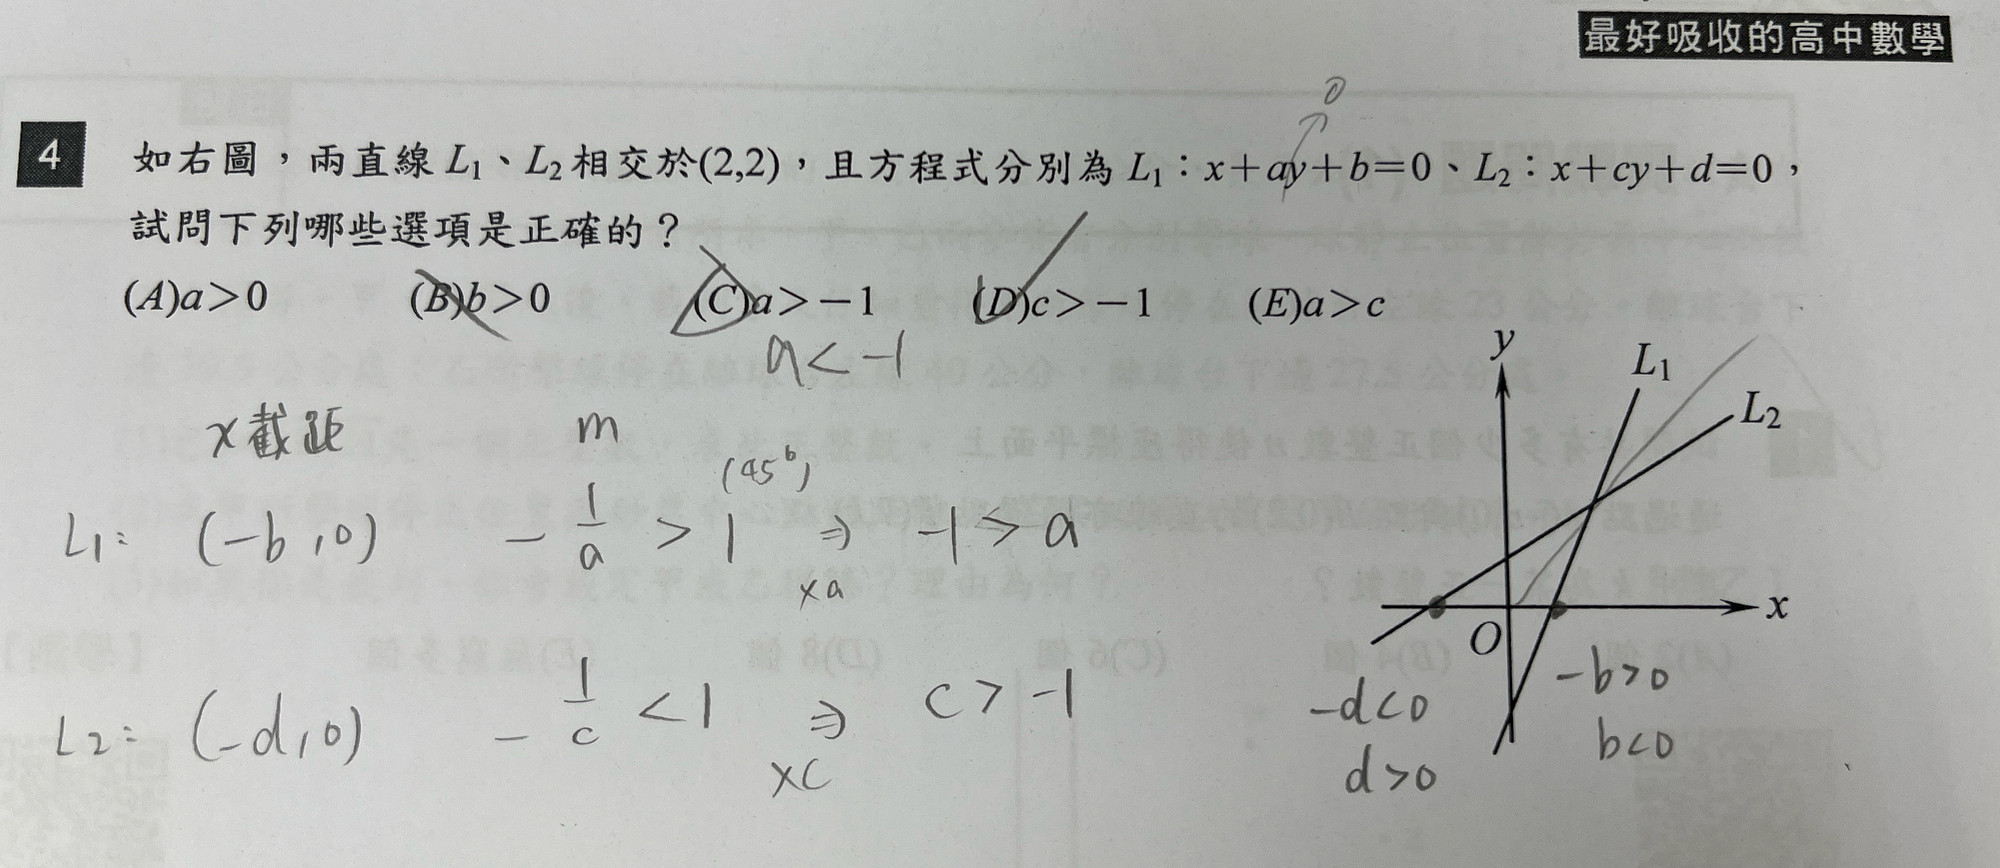 最好吸收的高中數學
0
4 如右圖，兩直線 L₁、L₂ 相交於(2,2)，且方程式分別為 L₁：x+ay+b=0、L₂：x+cy+d=0，
試問下列哪些選項是正確的？
(A)a>0 (B)b>0 (C)a>-1 (D)c>-1 (E)a>c
a<-1
x截距 m
(45°)
L1: (-b,0) -1/a > 1 ⇒ -1 > a
xa
L2: (-d,0) -1/c < 1 ⇒ c > -1
xc
y
L₁
L₂
x
O
-b>0
-d<0
b<0
d>0